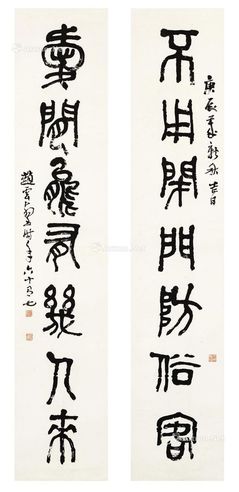 庚辰年新秋吉日
不用閉門防俗客
愛閒能有幾人來
趙雲壑時年六十有七